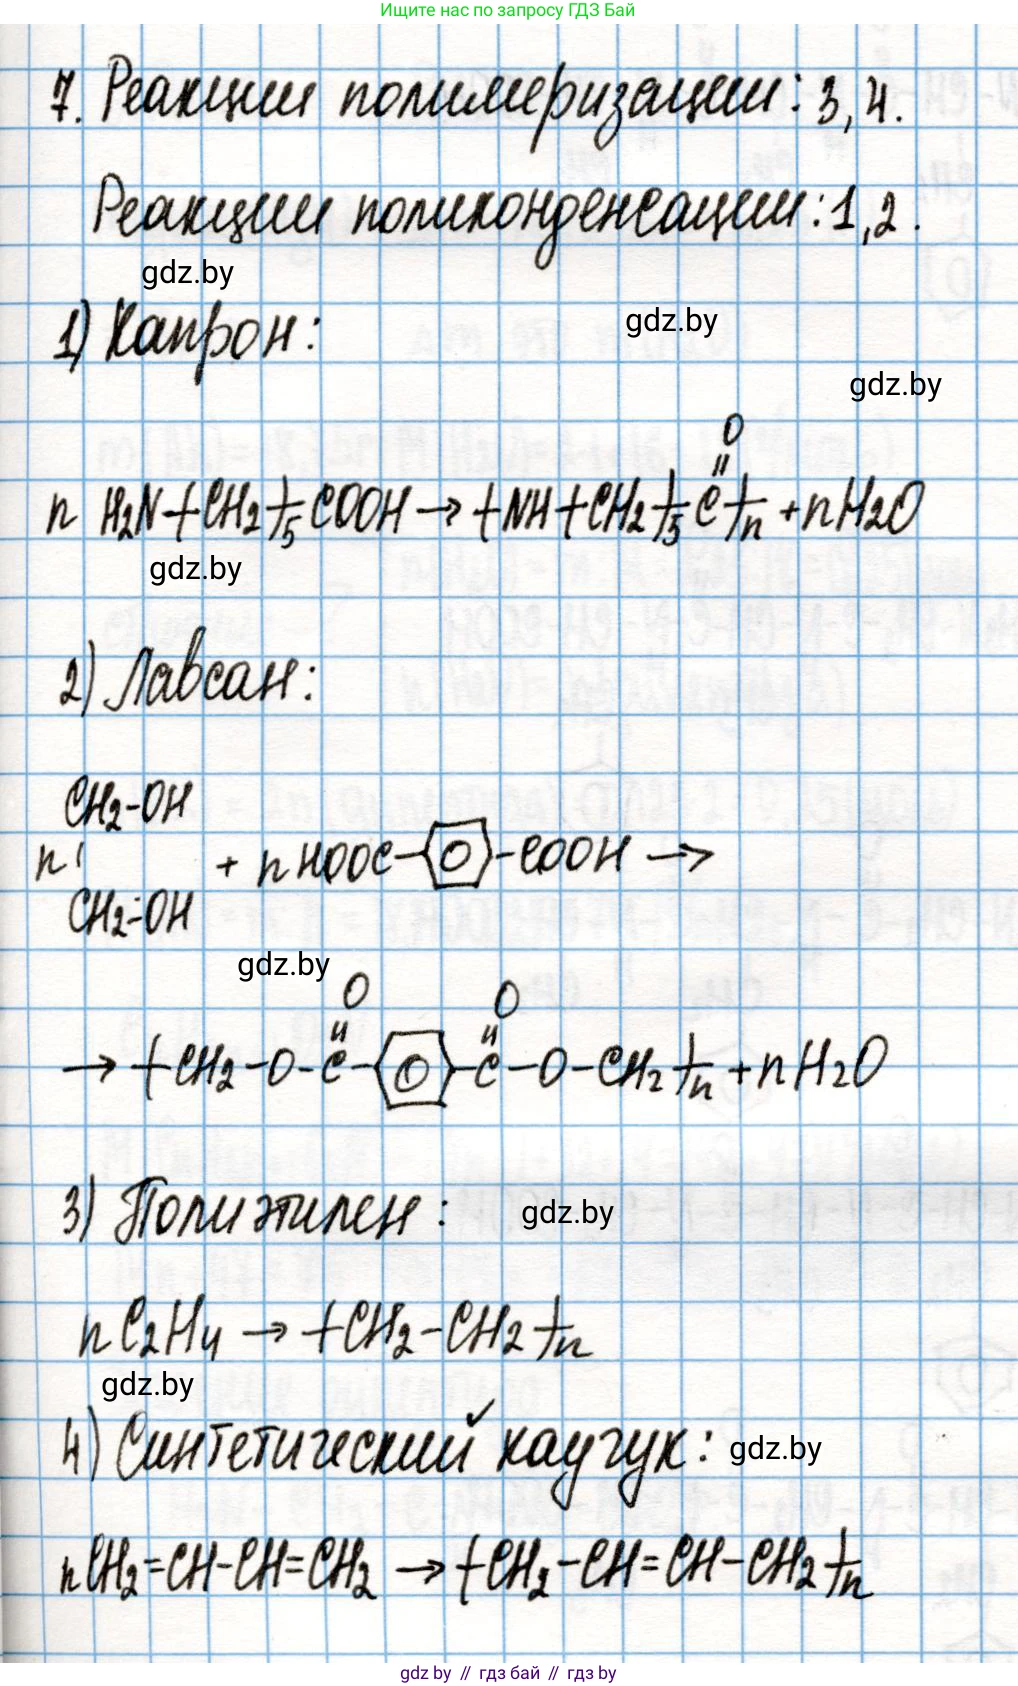 Ищите нас по запросу ГДЗ Бай
7. Реакции полимеризации: 3, 4.
Реакции поликонденсации: 1, 2.
gdz.by
1) Капрон:
gdz.by
gdz.by
O
n H2N-(CH2)-5 COOH → (-NH-(CH2)-5 C-)n + nH2O
gdz.by
2) Лавсан:
CH2-OH
n + n HOOC- -COOH →
CH2-OH
gdz.by
O O
→ (-CH2-O-C- -C-O-CH2-)n + nH2O
3) Полиэтилен:
gdz.by
nC2H4 → (-CH2-CH2-)n
gdz.by
4) Синтетический каучук:
gdz.by
nCH2=CH-CH=CH2 → (-CH2-CH=CH-CH2-)n
gdz by // гдз бай // гдз by